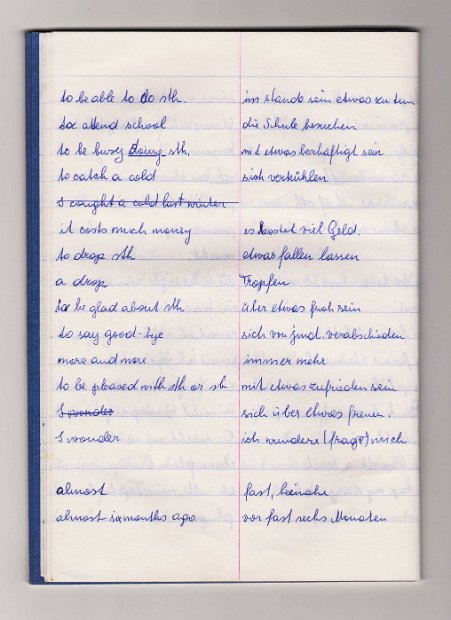 to be able to do sth. im stande sein etwas zu tun
to attend school die Schule besuchen
to be busy doing sth. mit etwas beschäftigt sein
to catch a cold sich verkühlen
I caught a cold last winter
it costs much money es kostet viel Geld.
to drop sth etwas fallen lassen
a drop Tropfen
to be glad about sth über etwas froh sein
to say good-bye sich von jmd. verabschieden
more and more immer mehr
to be pleased with sth or sb mit etwas zufrieden sein
I wonder sich über etwas freuen.
I wonder ich wundere (frage) mich
almost fast, beinahe
almost six months ago vor fast sechs Monaten